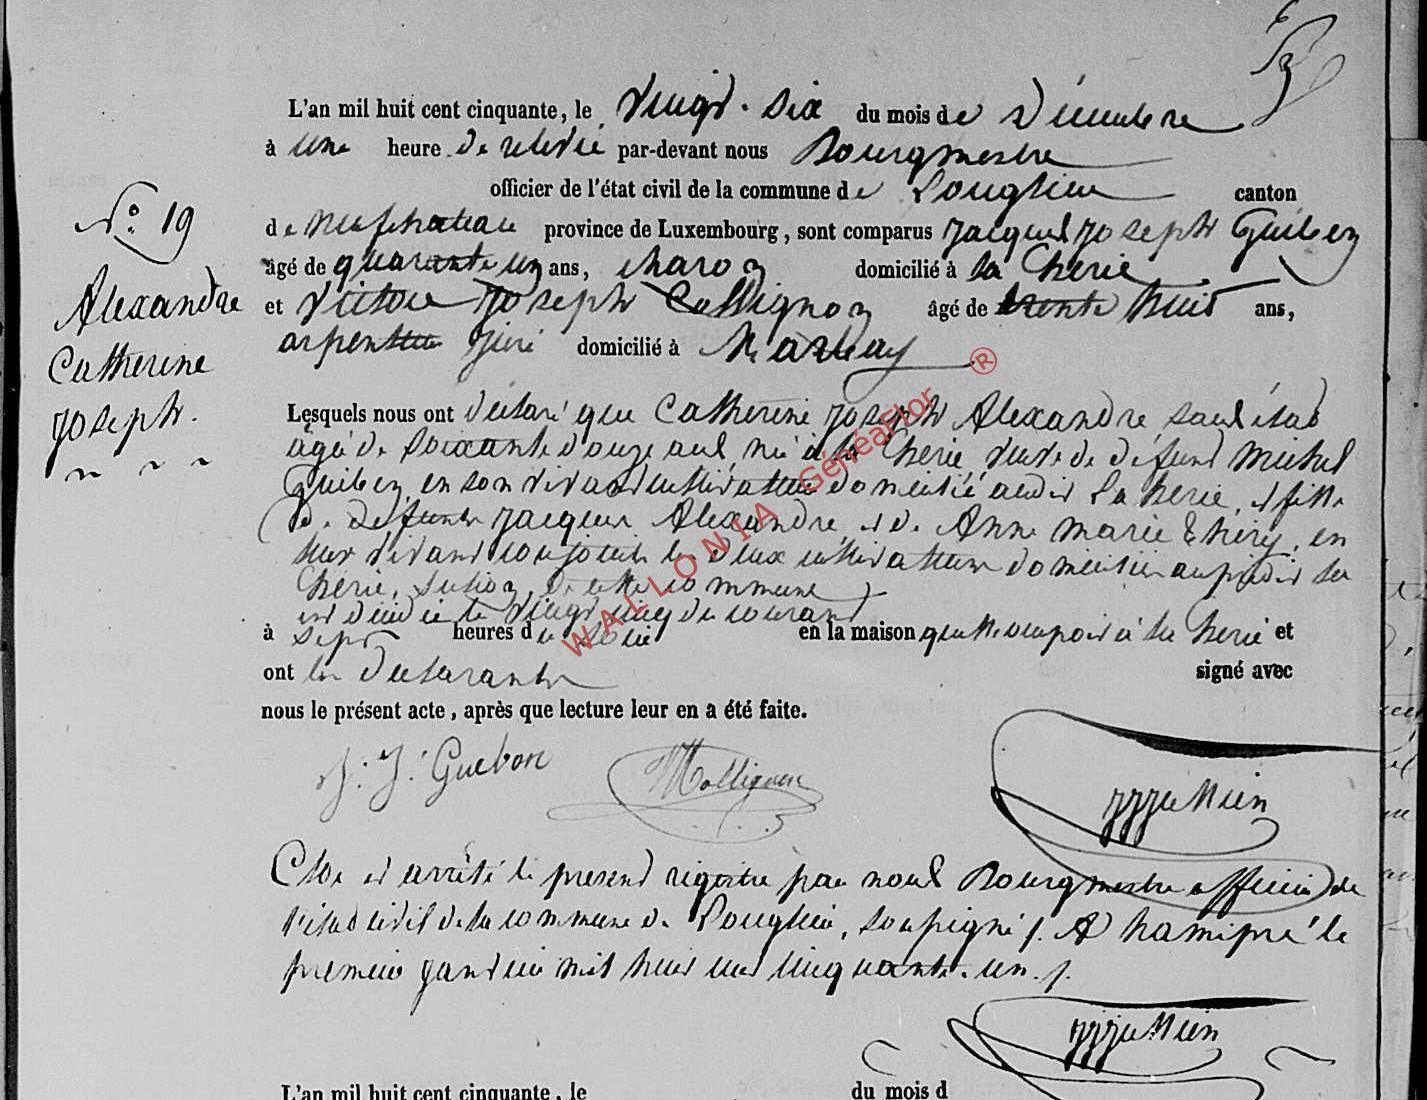 L'an mil huit cent cinquante, le vingt-six du mois de Décembre
à une heure de relevée par-devant nous Bourgmestre
officier de l'état civil de la commune de Longlier canton
de Neufchateau province de Luxembourg, sont comparus Jacques Joseph Gueben
âgé de quarante un ans, charon domicilié à la Cherie
et Victore Joseph Collignon âgé de trente huit ans,
arpenteur juré domicilié à Marbay
N.º 19
Alexandre
Catherine
Joseph.
Lesquels nous ont déclaré que Catherine Joseph Alexandre sans état
agée de soixante douze ans, née à la Cherie, veuve de défunt Michel
Gueben, en son vivant cultivateur domicilié audit la herie, et fille
de defunts Jacques Alexandre, et de Anne Marie Thiry, en
leur vivant conjoints les deux cultivateurs domiciliés au predit la
Cherie, section de cette commune
est décédée le vingt cinq du courant
à sept heures du soir en la maison quelle occupoit à la herie et
ont les declarants signé avec
nous le présent acte, après que lecture leur en a été faite.
J. J. Guebon Collignon
Clos et arrêté le present registre par nous Bourgmestre officier de
l'état civil de la commune de Longlier, soussigné /. A hamipré le
premier janvier mil huit cent cinquante-un /.
L'an mil huit cent cinquante, le du mois d
WALLONIA GénéaFlor ®